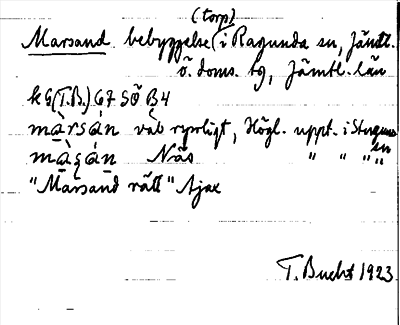 (torp)
Marsand bebyggelse i Ragunda sn, Jämtl.
ö. doms. tg, Jämtl. län
k G (T.B.) 67 SÖ B 4
màrsán Högl. uppt. i Stuguns sn
màşán Näs " " " "
"Marsand rätt" Ajax
T. Bucht 1923